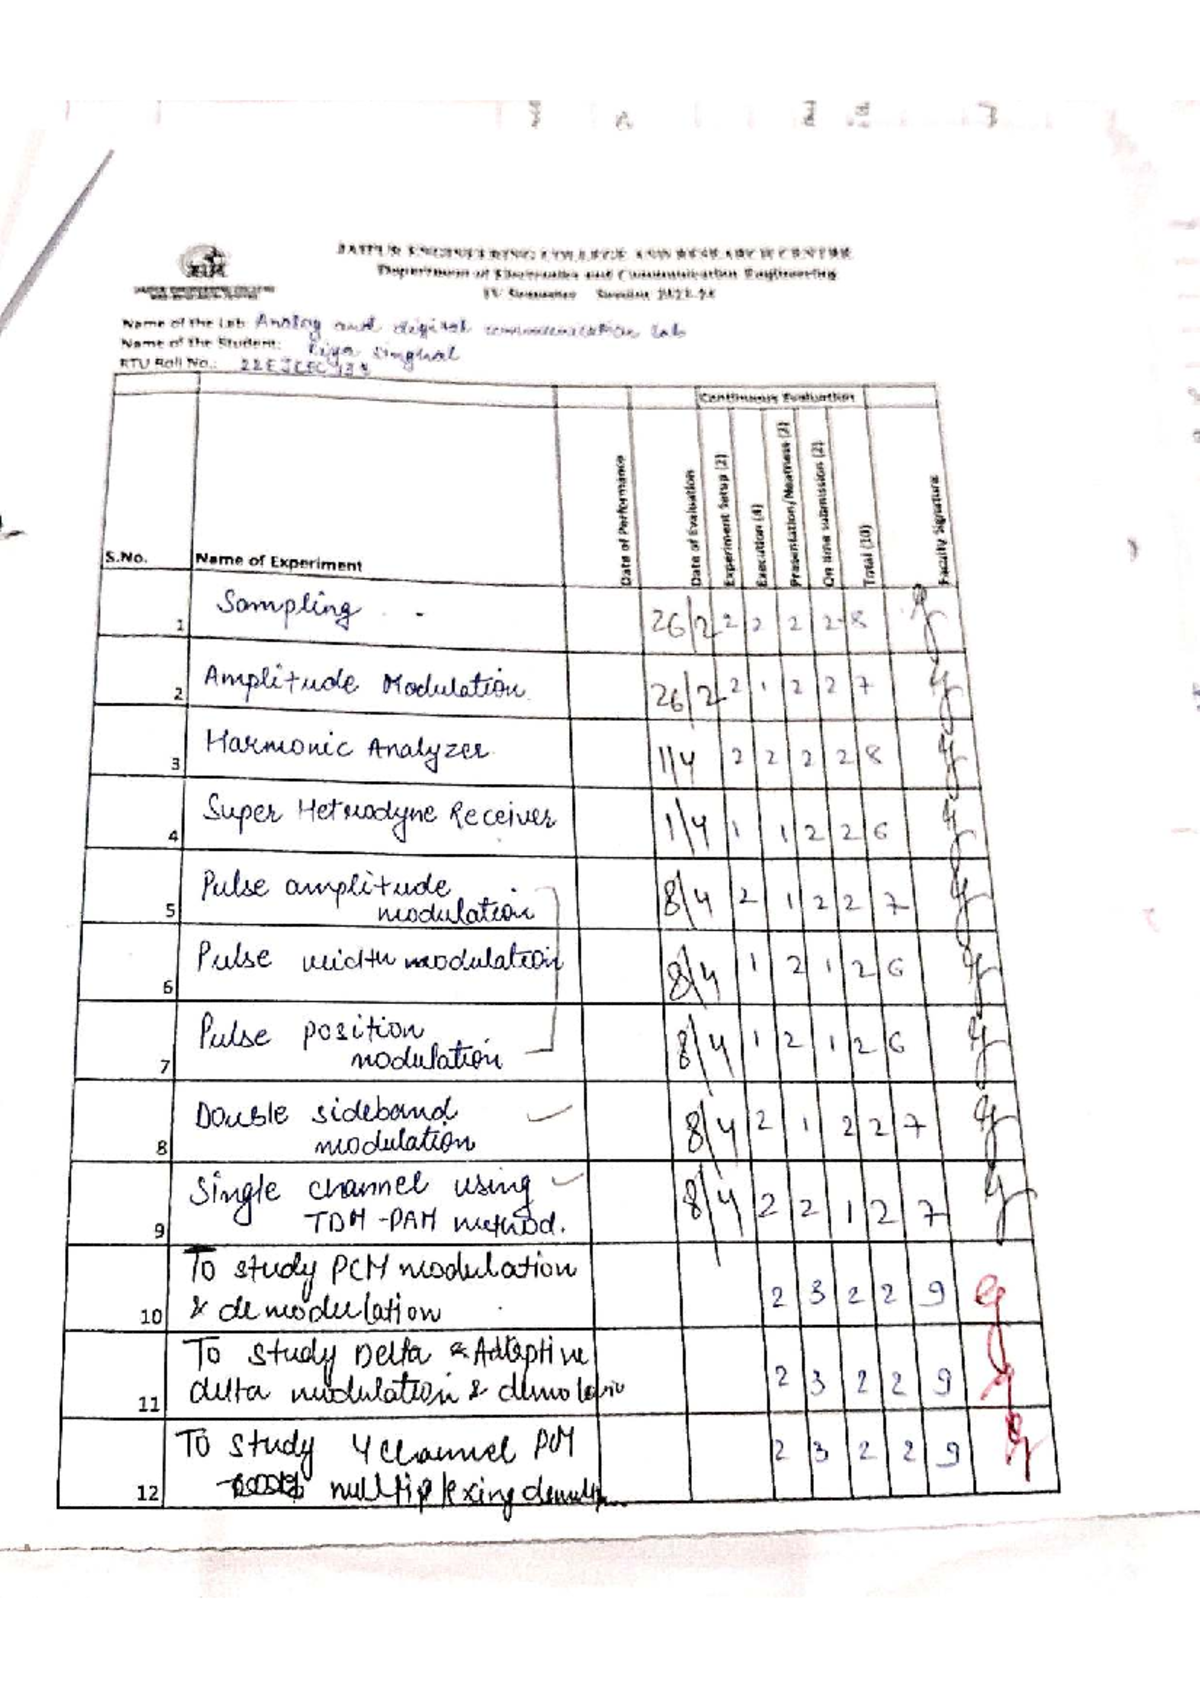 JAIPUR ENGINEERING COLLEGE AND RESEARCH CENTRE
Department of Electronics and Communication Engineering
IV Semester Session 2023-24
Name of the Lab: Analog and digital communication lab
Name of the Student: Riya Singhal
RTU Roll No.:
Continuous Evaluation
S.No. Name of Experiment Date of Performance Date of Evaluation Experiment Setup (2) Execution (4) Presentation/Neatness (2) On time submission (2) Total (10) Faculty Signature
1 Sampling 26/2 2 2 2 2 8
2 Amplitude Modulation 26/2 2 1 2 2 7
3 Harmonic Analyzer 1/4 2 2 2 2 8
4 Super Hetrodyne Receiver 1/4 1 1 2 2 6
5 Pulse amplitude
modulation 8/4 2 1 2 2 7
6 Pulse width modulation 8/4 1 2 1 2 6
7 Pulse position
modulation 8/4 1 2 1 2 6
8 Double sideband
modulation 8/4 2 1 2 2 7
9 Single channel using
TDM-PAM method. 8/4 2 2 1 2 7
To study PCM modulation
10 & demodulation 2 3 2 2 9
To study Delta & Adaptive
11 delta modulation & 2 3 2 2 9
To study 4 channel PCM
12 multiplexing 2 3 2 2 9